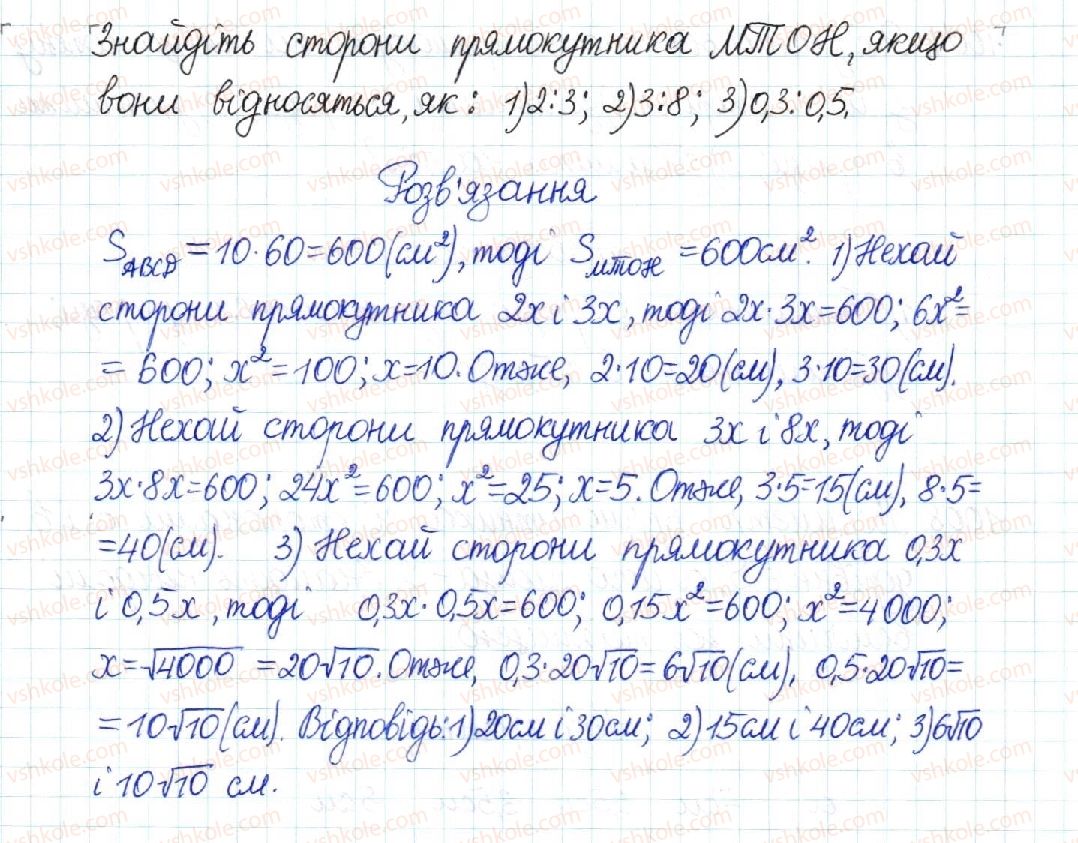 Знайдіть сторони прямокутника МТОН, якщо
вони відносяться, як: 1) 2:3; 2) 3:8; 3) 0,3:0,5.
Розв'язання
S_ABCD = 10·60=600(см²), тоді S_МТОН = 600см². 1) Нехай
сторони прямокутника 2x і 3x, тоді 2x·3x=600; 6x²=
= 600; x²=100; x=10. Отже, 2·10=20(см), 3·10=30(см).
2) Нехай сторони прямокутника 3x і 8x, тоді
3x·8x=600; 24x²=600; x²=25; x=5. Отже, 3·5=15(см), 8·5=
=40(см). 3) Нехай сторони прямокутника 0,3x
і 0,5x, тоді 0,3x·0,5x=600; 0,15x²=600; x²=4000;
x=√4000 =20√10. Отже, 0,3·20√10=6√10(см), 0,5·20√10=
=10√10(см). Відповідь: 1) 20см і 30см; 2) 15см і 40см; 3) 6√10
і 10√10 см.
vshkole.com